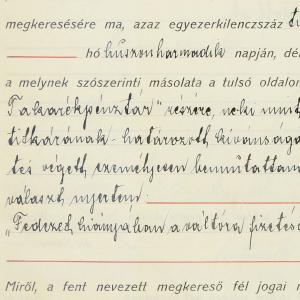 megkeresésére ma, azaz egyezerkilenczszáz
hó huszonharmadik napján, dé
a melynek szószerinti másolata a tulsó oldalon
Takarékpénztár" részére, neki mint
titkárának határozott kivánsága
tés végett személyesen bemutattam
választ nyertem:
„Fedezet hiányában a váltóra fizetés
Miről, a fent nevezett megkereső fél jogai